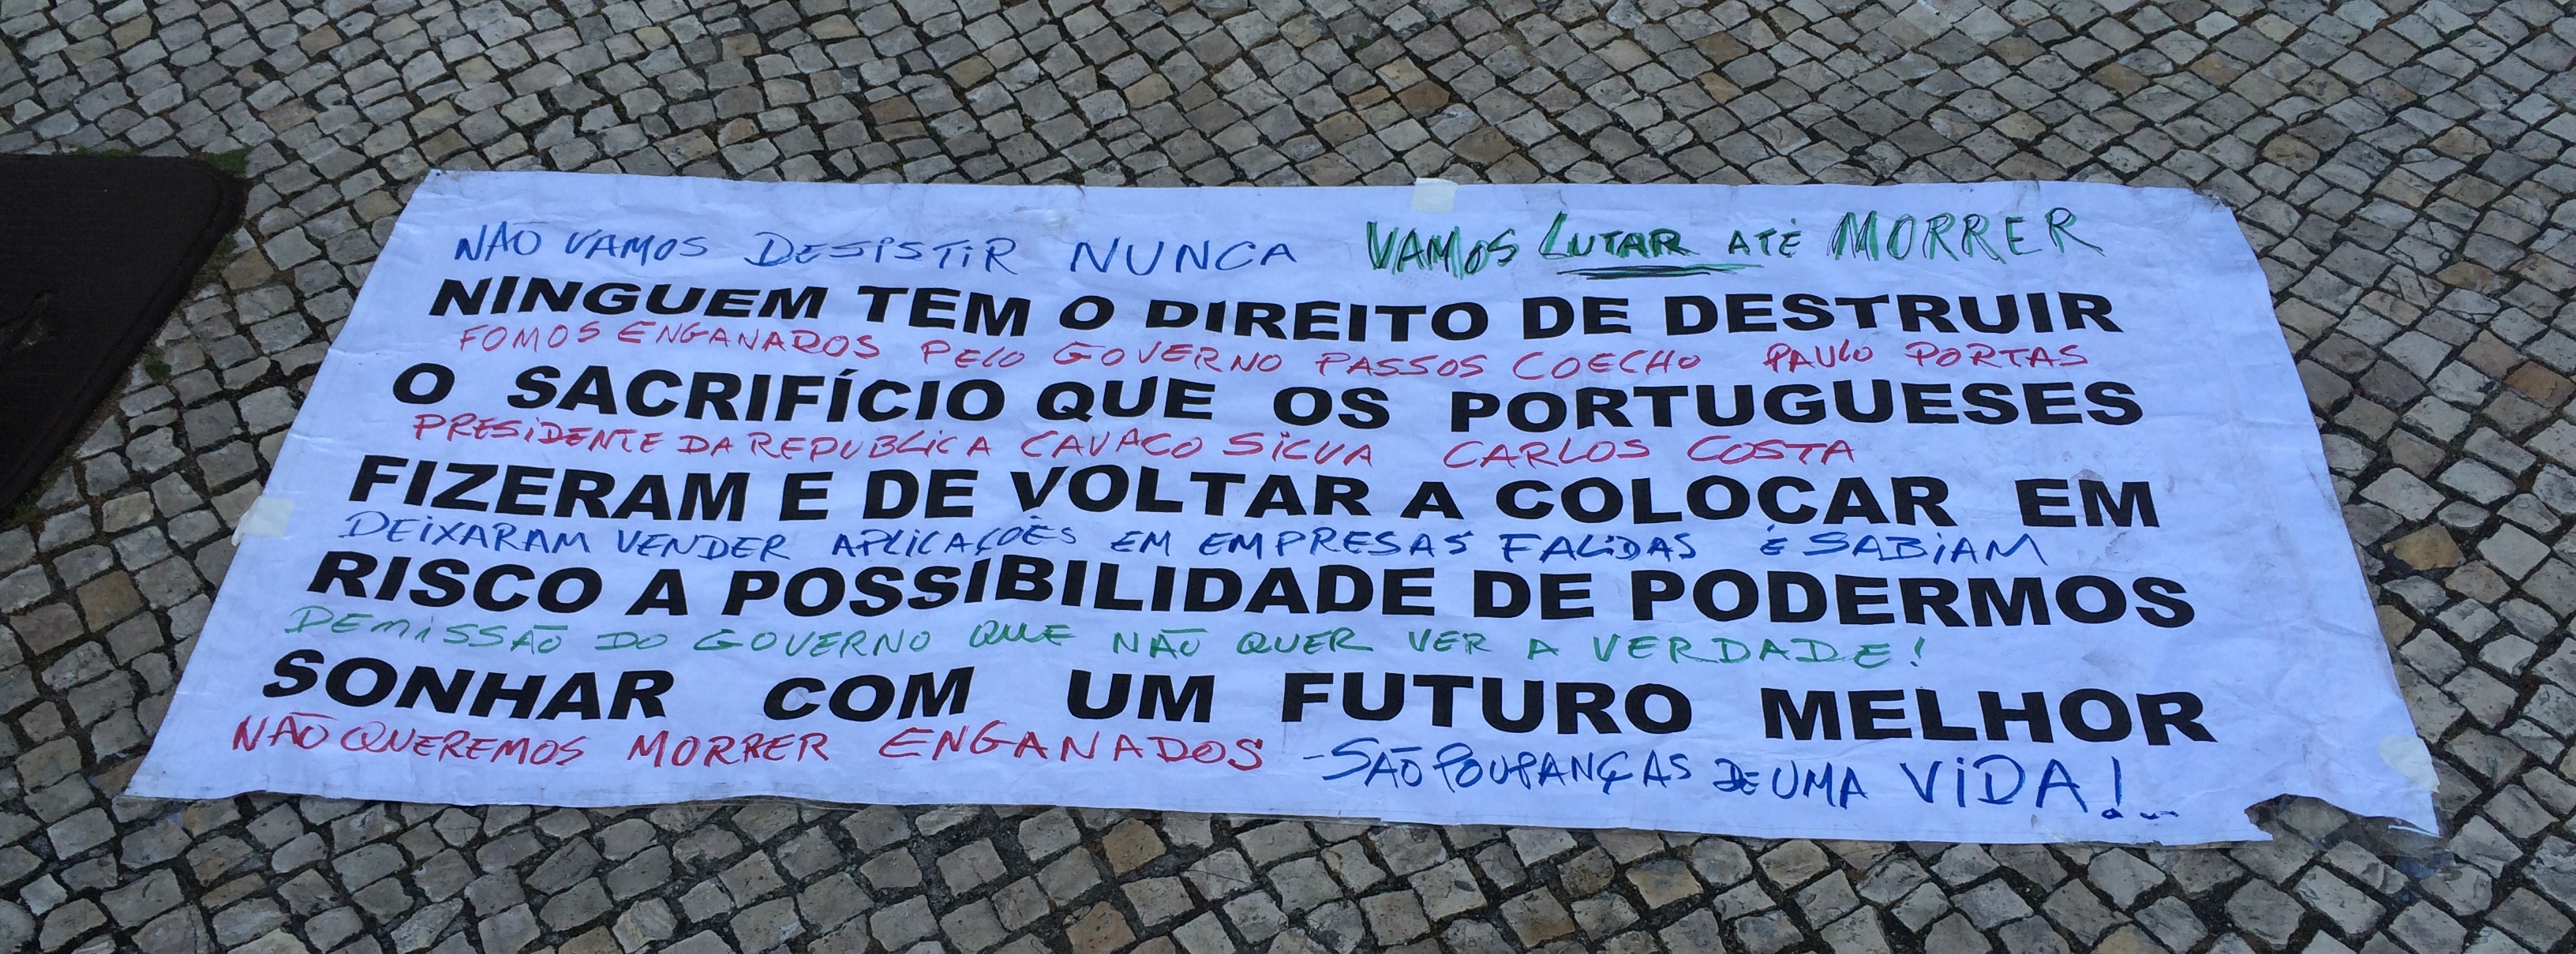 NÃO VAMOS DESISTIR NUNCA VAMOS LUTAR ATÉ MORRER
NINGUEM TEM O DIREITO DE DESTRUIR
FOMOS ENGANADOS PELO GOVERNO PASSOS COELHO PAULO PORTAS
O SACRIFÍCIO QUE OS PORTUGUESES
PRESIDENTE DA REPUBLICA CAVACO SILVA CARLOS COSTA
FIZERAM E DE VOLTAR A COLOCAR EM
DEIXARAM VENDER APLICAÇÕES EM EMPRESAS FALIDAS E SABIAM
RISCO A POSSIBILIDADE DE PODERMOS
DEMISSÃO DO GOVERNO QUE NÃO QUER VER A VERDADE!
SONHAR COM UM FUTURO MELHOR
NÃO QUEREMOS MORRER ENGANADOS - SÃO POUPANÇAS DE UMA VIDA!..